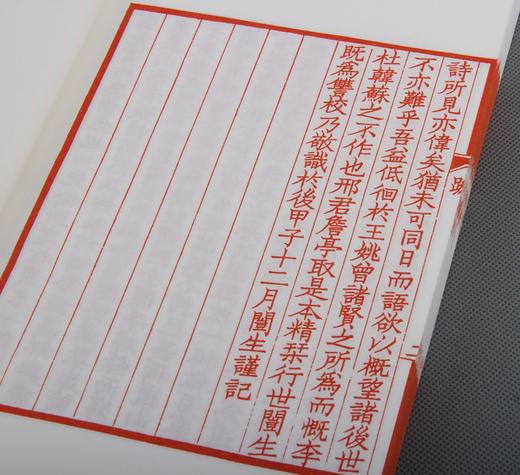 詩所見亦偉矣猶未可同日而語欲以概望諸後世
不亦難乎吾益低徊於王姚曾諸賢之所為而慨李
杜韓蘇之不作也邢君詹亭取是本精槧行世闓生
既為讐校乃敬識於後甲子十二月闓生謹記
跋
二